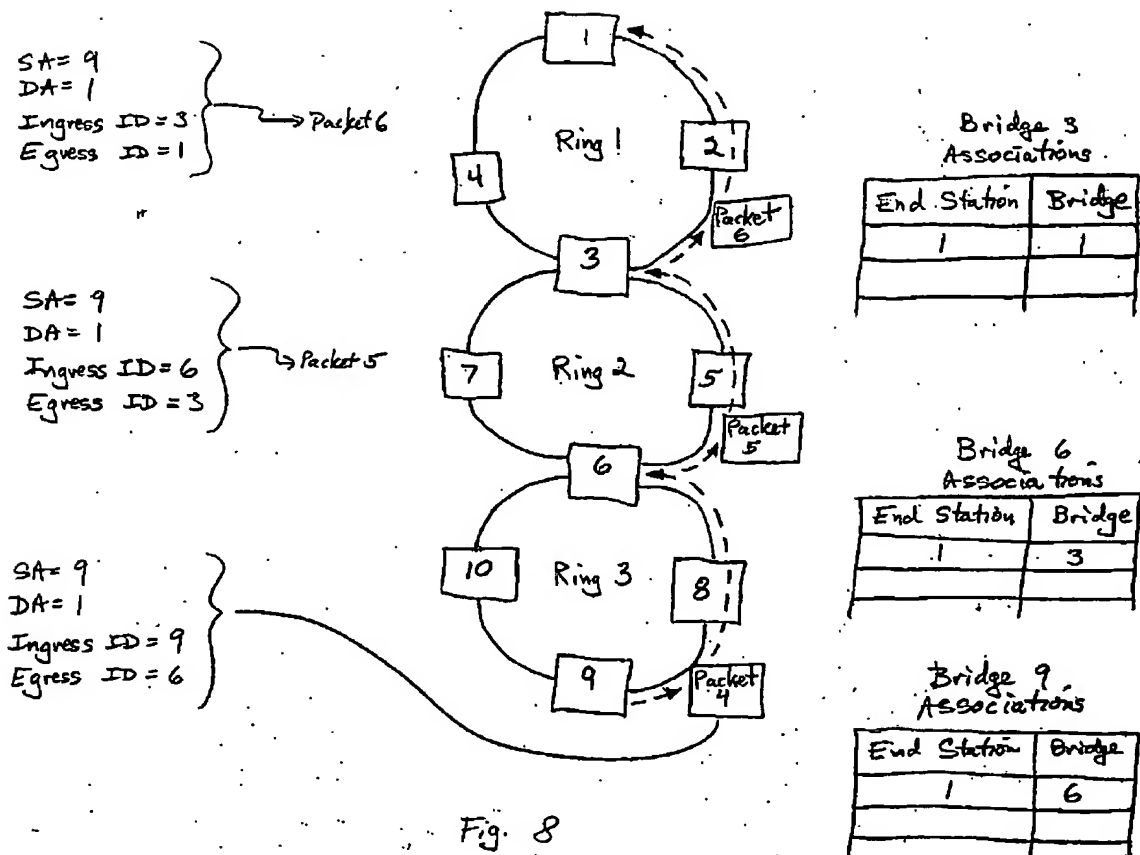 SA= 9
DA= 1
Ingress ID= 3
Egress ID= 1
Packet 6
SA= 9
DA= 1
Ingress ID= 6
Egress ID= 3
Packet 5
SA= 9
DA= 1
Ingress ID= 9
Egress ID= 6
1
Ring 1
2
4
Packet
6
3
7
Ring 2
5
Packet
5
6
10
Ring 3
8
9
Packet
4
Bridge 3
Associations
End Station Bridge
1 1
Bridge 6
Associations
End Station Bridge
1 3
Bridge 9
Associations
End Station Bridge
1 6
Fig. 8